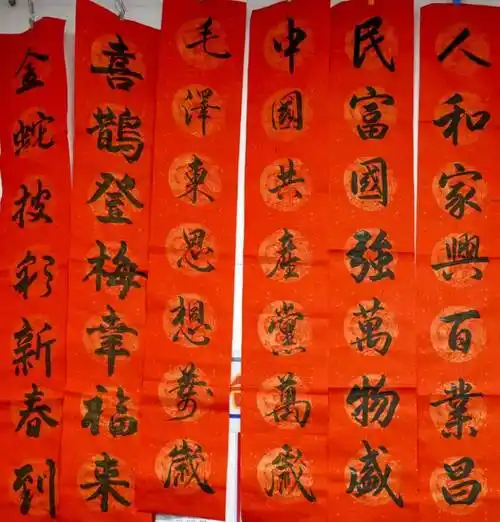 人和家興百業昌
民富國強萬物盛
中國共產黨萬歲
毛澤東思想萬歲
喜鵲登梅幸福来
金蛇披彩新春到